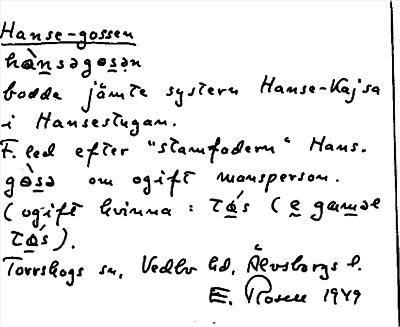 Hanse-gossen
hànsəgosən
bodde jämte systern Hanse-Kajsa
i Hansestugan.
F. led efter "stamfadern" Hans.
gòsə om ogift mansperson.
(ogift kvinna : tǻs (e gaməl
tǻs).
Torrskogs sn, Vedbo hd, Älvsborgs l.
E. Rosell 1949